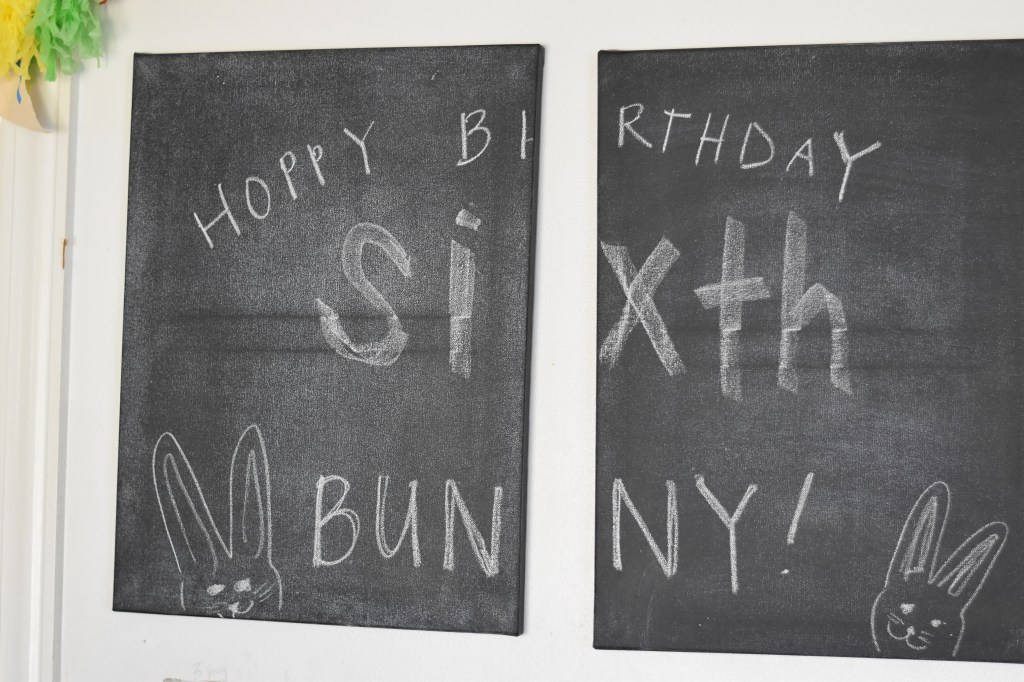 HOPPY BIRTHDAY
sixth
BUNNY!